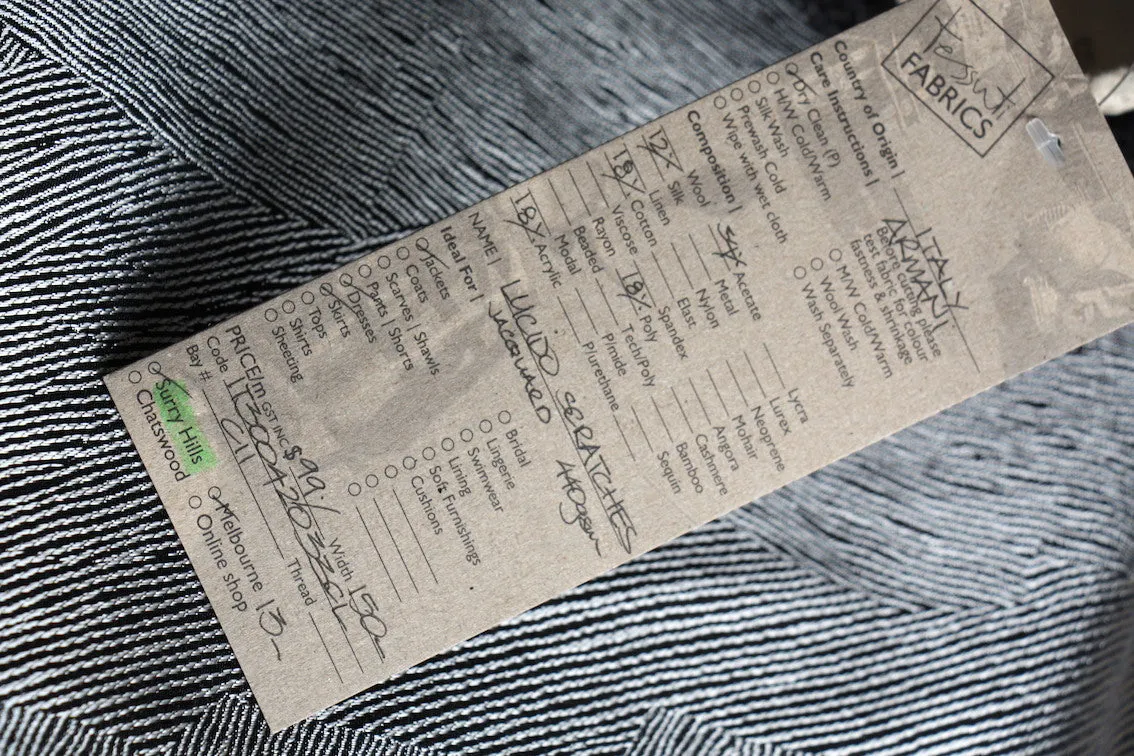 Tessuti
FABRICS
Country of Origin | ITALY
ARMANI
Care Instructions | Before cutting please
test fabric for colour
fastness & shrinkage
Dry Clean (P)
H/W Cold/Warm
Silk Wash
Prewash Cold
Wipe with wet cloth
M/W Cold/Warm
Wool Wash
Wash Separately
Composition |
Wool
12% Silk
Linen
18% Cotton
Viscose
Rayon
Beaded
Modal
18% Acrylic
34% Acetate
Metal
Nylon
Elast
Spandex
18% Poly
Tech/Poly
P/mide
P/urethane
Lycra
Lurex
Neoprene
Mohair
Angora
Cashmere
Bamboo
Sequin
NAME | LUCIDO SCRATCHES
JACQUARD 440gsm
Ideal For |
Jackets
Coats
Scarves | Shawls
Pants | Shorts
Dresses
Skirts
Tops
Shirts
Sheeting
Bridal
Lingerie
Swimwear
Lining
Soft Furnishings
Cushions
PRICE/m GST INC $99/ Width 150
Code
Bay # C11 Thread
Surry Hills
Chatswood
Melbourne 13m
Online shop